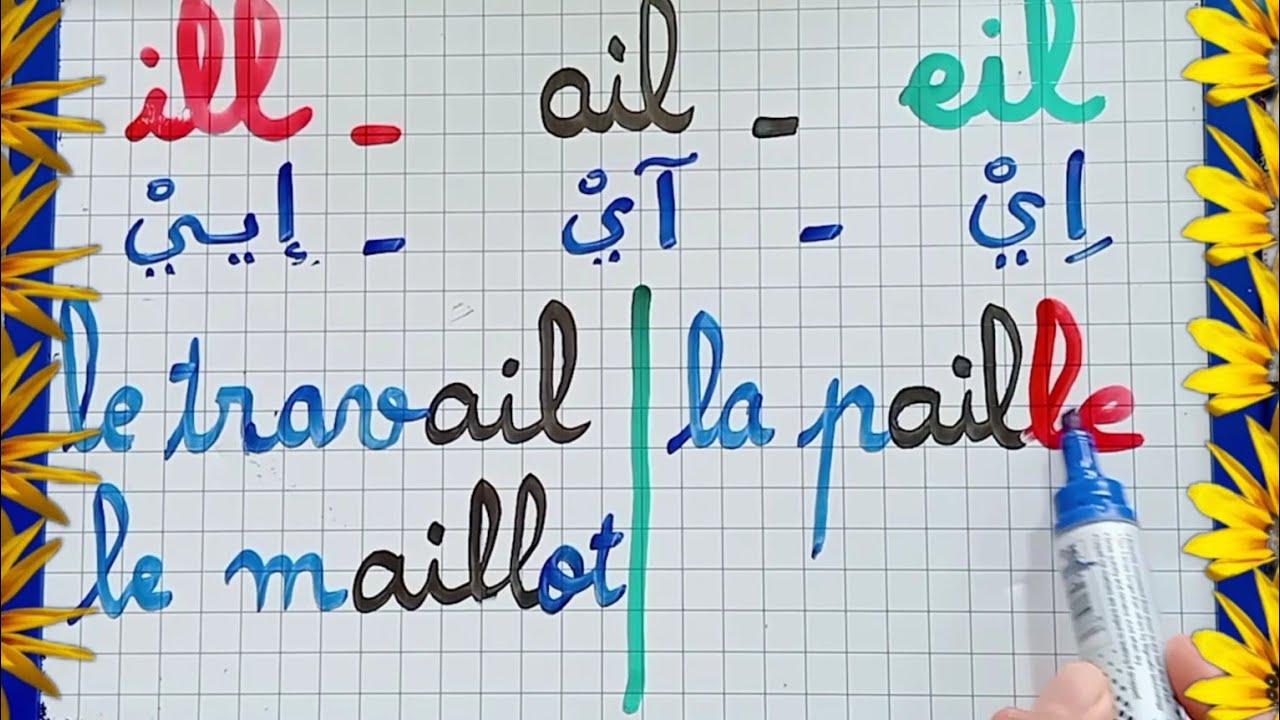 ill - ail - eil
إييْ - آيْ - اِيْ
le travail
la paille
le maillot